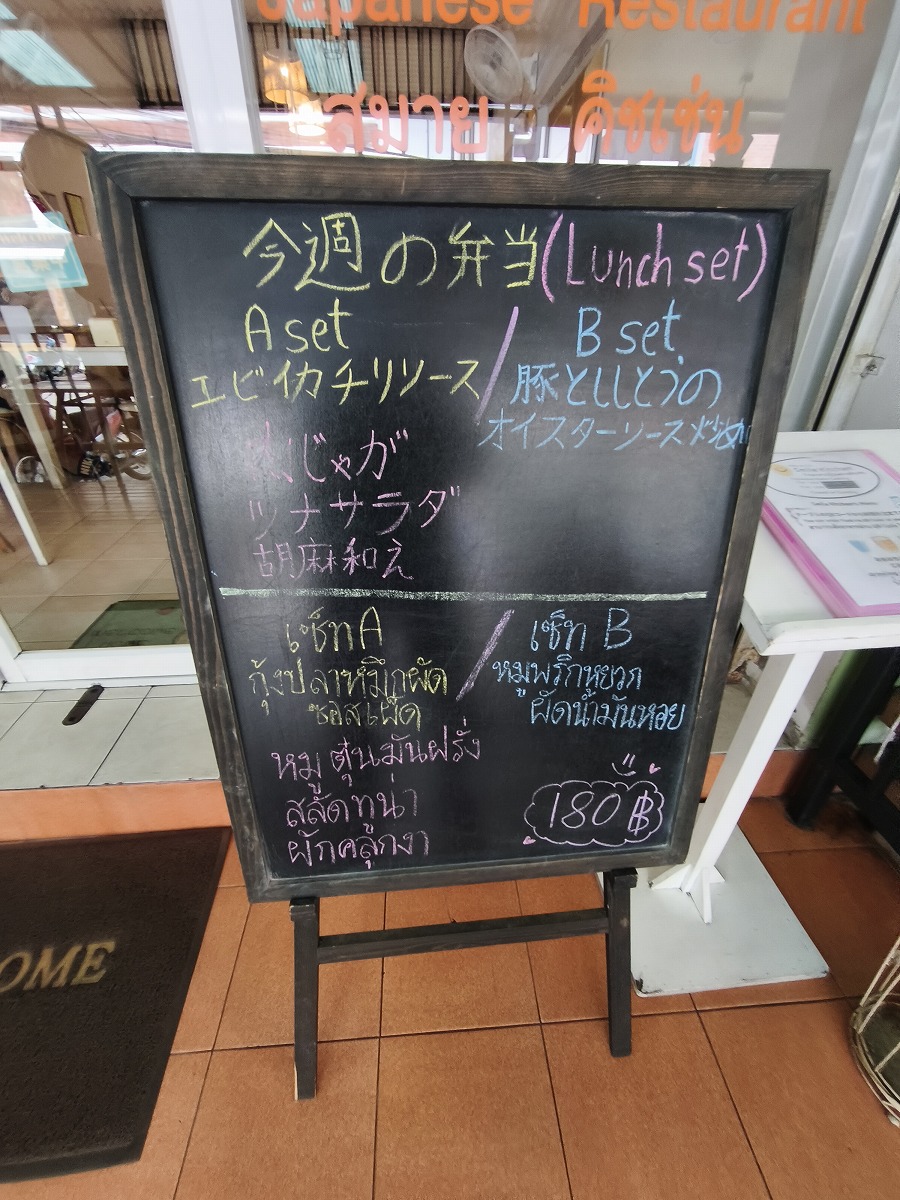 Japanese Restaurant
สมาย คิชเช่น
今週の弁当(Lunch set)
A set / B set
エビイカチリソース
豚とししとうの
オイスターソース炒め
肉じゃが
ツナサラダ
胡麻和え
เซ็ทA / เซ็ท B
กุ้งปลาหมึกผัด
ซอสเผ็ด
หมูพริกหยวก
ผัดน้ำมันหอย
หมูตุ๋นมันฝรั่ง
สลัดทูน่า
ผักคลุกงา
180 ฿
OME